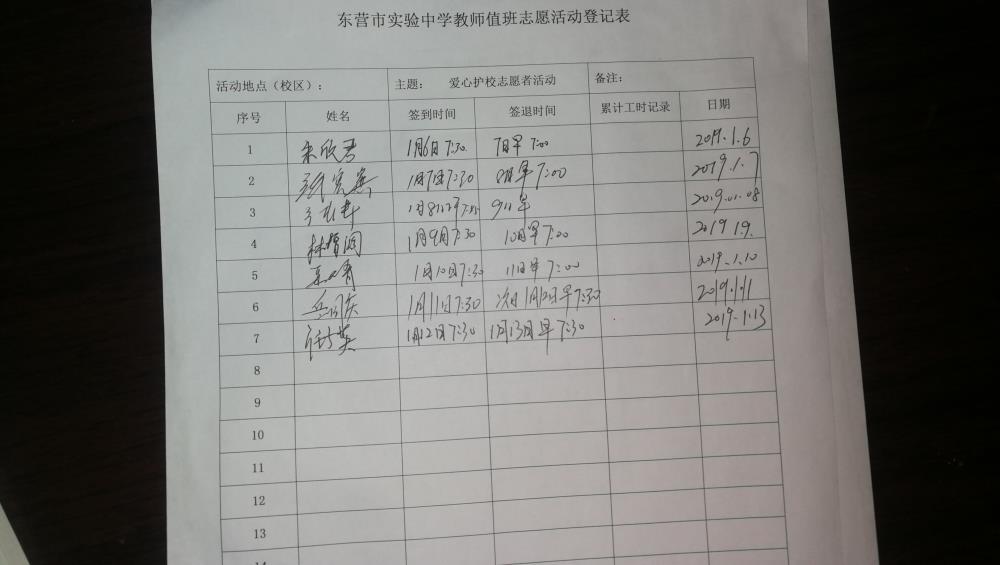 东营市实验中学教师值班志愿活动登记表
活动地点（校区）： 主题： 爱心护校志愿者活动 备注：
序号 姓名 签到时间 签退时间 累计工时记录 日期
1 1月6日7:30 7日早7:00 2019.1.6
2 1月7日7:30 8日早7:00 2019.1.7
3 1月8日 9日早 2019.01.08
4 1月9日7:30 10日早7:00 2019 1 9.
5 1月10日7:30 11日早7:00 2019.1.10
6 1月11日7:30 次日1月12日早7:30 2019.1.11
7 1月12日7:30 1月13日早7:30 2019.1.13
8
9
10
11
12
13
14